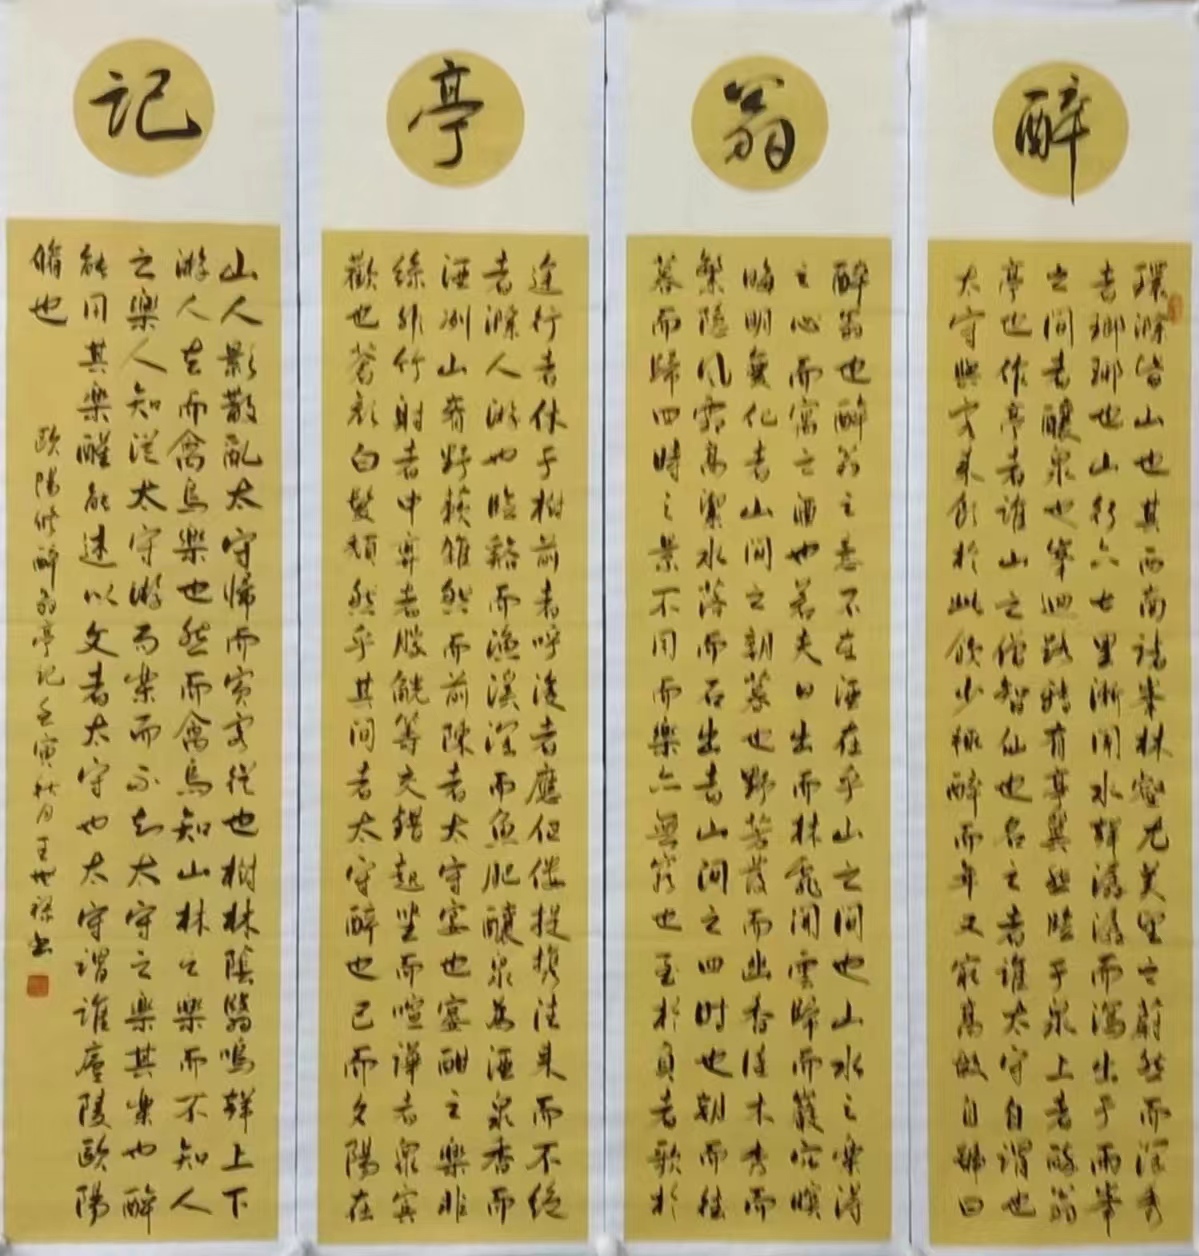 醉
翁
亭
记
環滁皆山也其西南諸峯林壑尤美望之蔚然而深秀
者瑯琊也山行六七里漸聞水聲潺潺而瀉出于兩峯
之間者釀泉也峯迴路轉有亭翼然臨于泉上者醉翁
亭也作亭者誰山之僧智仙也名之者誰太守自謂也
太守與客来飲於此飲少輒醉而年又最高故自號曰
醉翁也醉翁之意不在酒在乎山之間也山水之樂得
之心而寓之酒也若夫日出而林霏開雲歸而巖穴暝
晦明變化者山間之朝暮也野芳發而幽香佳木秀而
繁陰風霜高潔水落而石出者山間之四時也朝而往
暮而歸四時之景不同而樂亦無窮也至於負者歌於
途行者休于樹前者呼後者應伛偻提携往来而不绝
者滁人游也臨谿而漁溪深而魚肥釀泉為酒泉香而
酒洌山肴野蔌雜然而前陳者太守宴也宴酣之樂非
絲非竹射者中弈者勝觥筹交錯起坐而喧譁者衆賓
歡也蒼顏白髮頹然乎其間者太守醉也已而夕陽在
山人影散亂太守歸而賓客從也樹林陰翳鳴聲上下
游人去而禽鳥樂也然而禽鳥知山林之樂而不知人
之樂人知從太守游而樂而不知太守之樂其樂也醉
能同其樂醒能述以文者太守也太守謂誰廬陵歐陽
脩也
歐陽修醉翁亭記壬寅秋月王書